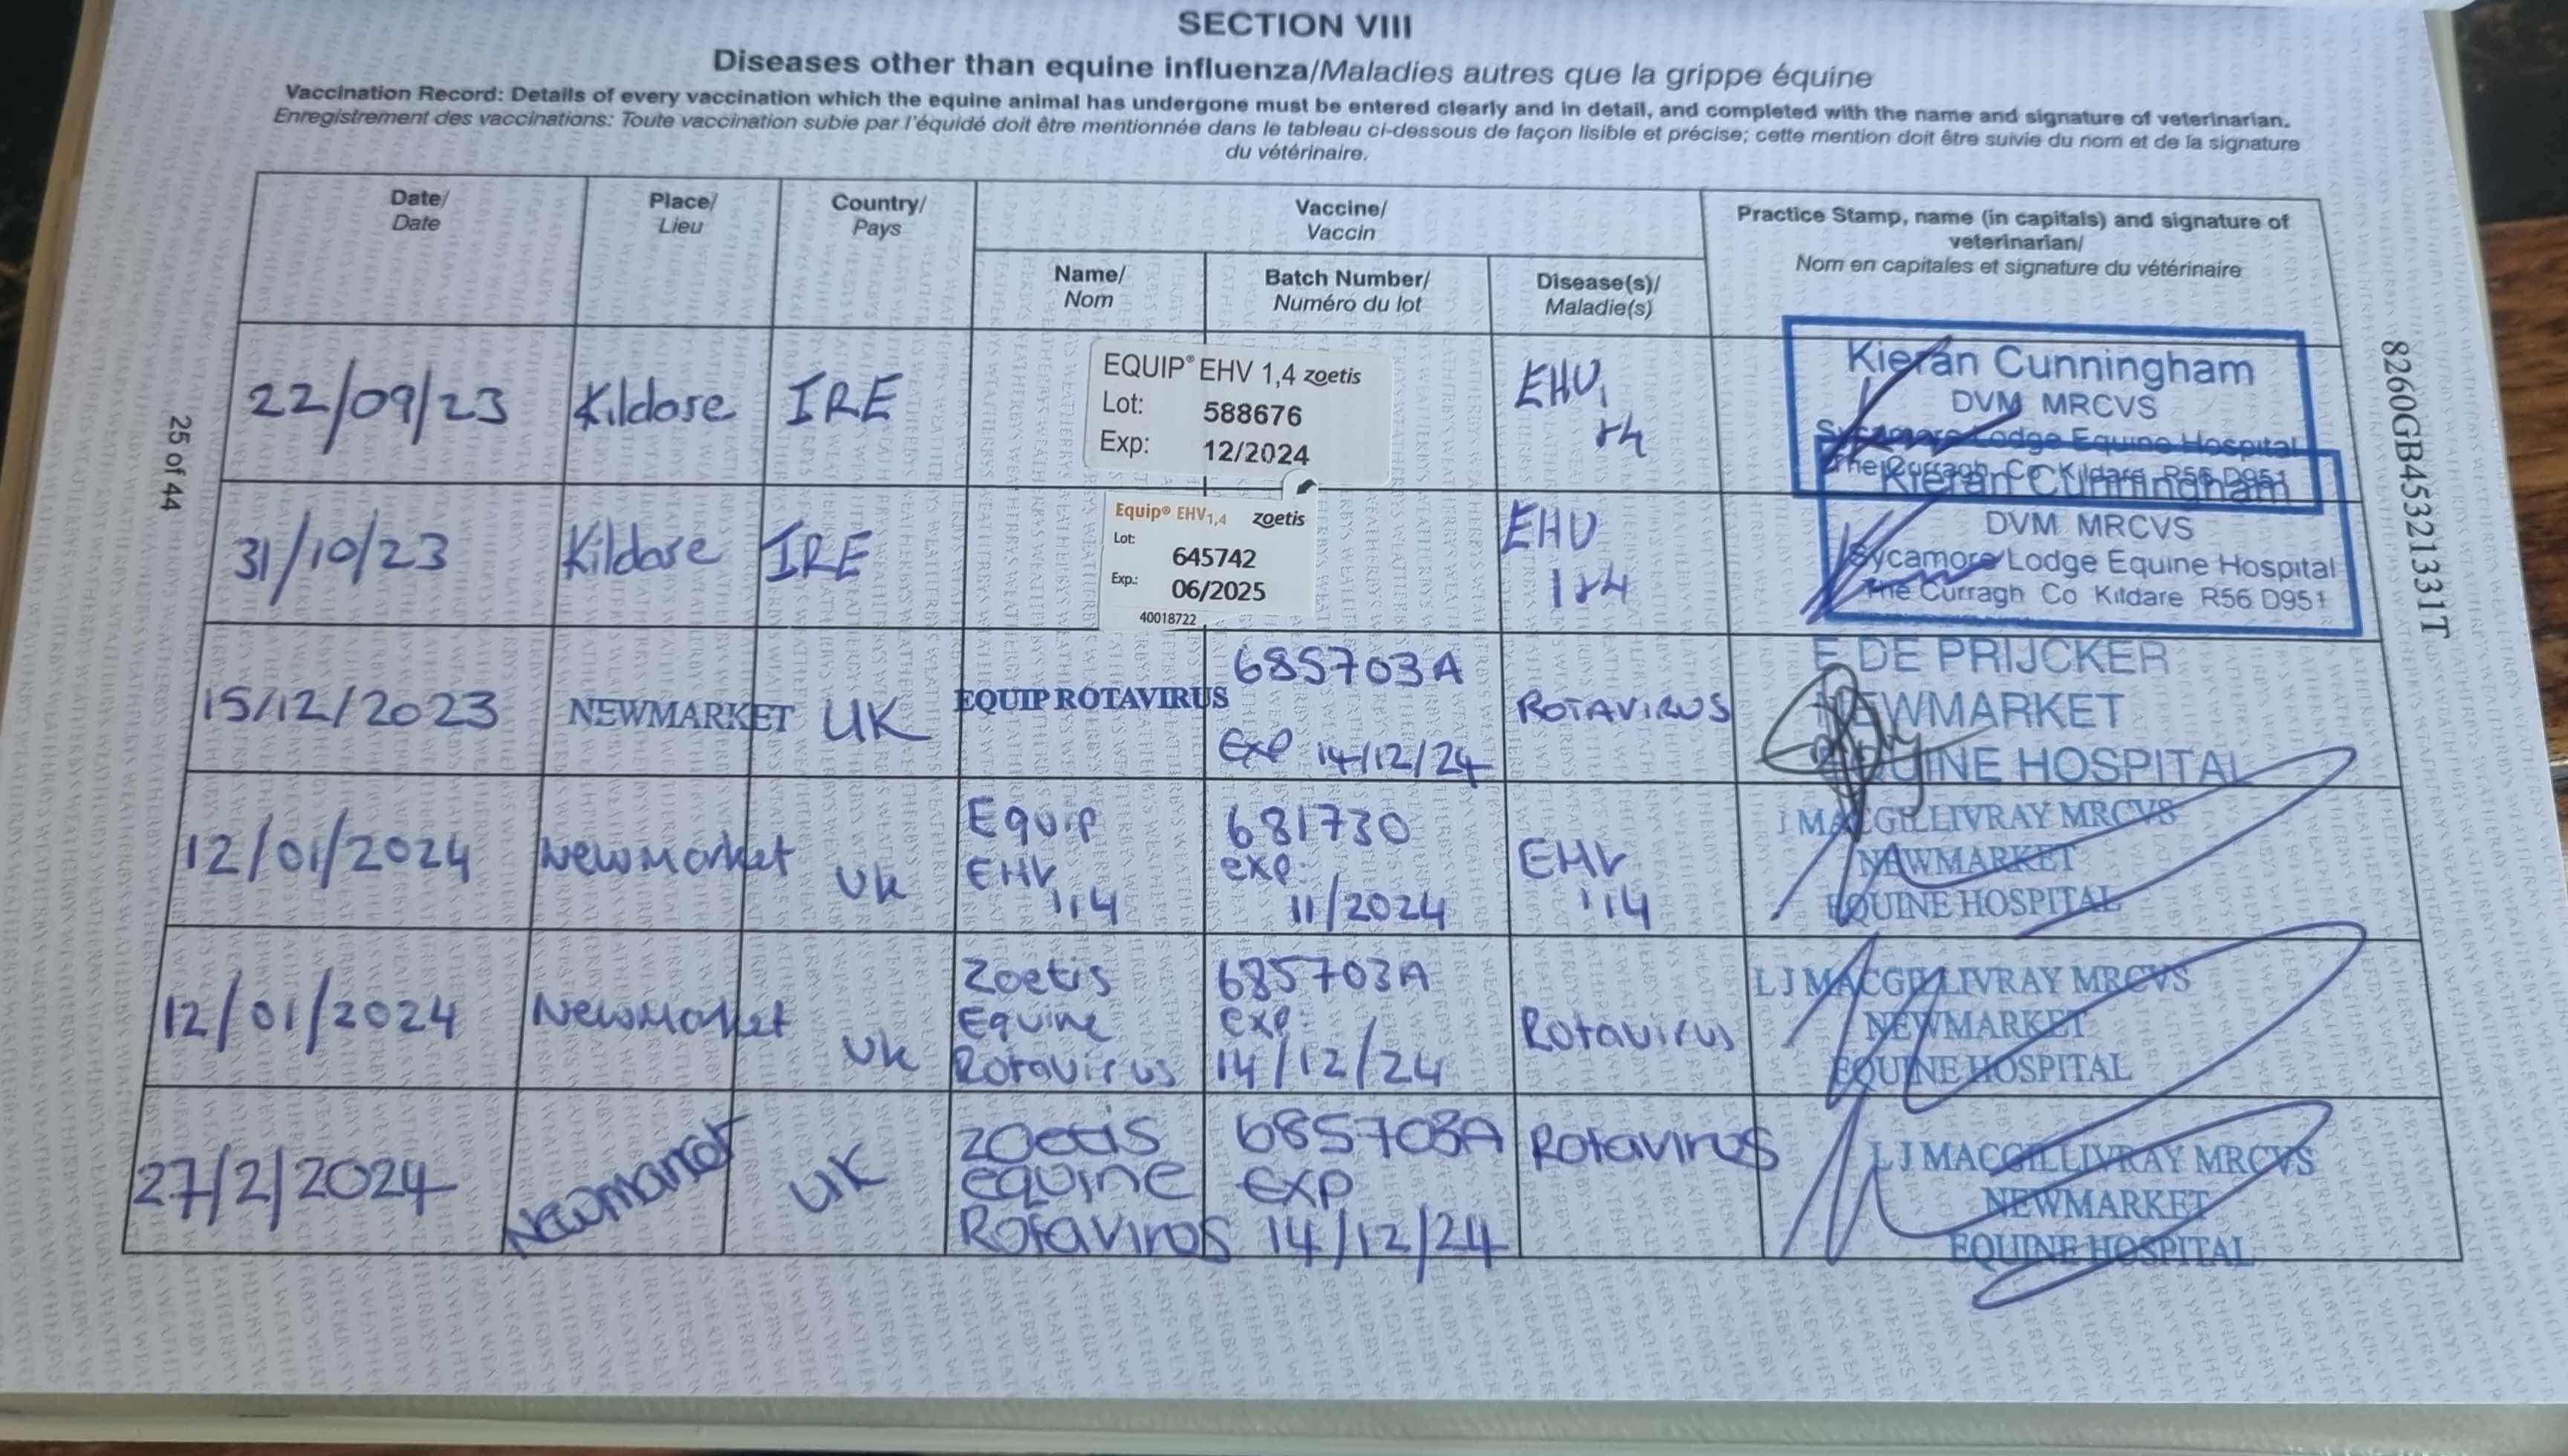 SECTION VIII
Diseases other than equine influenza/Maladies autres que la grippe équine
Vaccination Record: Details of every vaccination which the equine animal has undergone must be entered clearly and in detail, and completed with the name and signature of veterinarian.
Enregistrement des vaccinations: Toute vaccination subie par l'équidé doit être mentionnée dans le tableau ci-dessous de façon lisible et précise; cette mention doit être suivie du nom et de la signature
du vétérinaire.
Date/
Date
Place/
Lieu
Country/
Pays
Vaccine/
Vaccin
Name/
Nom
Batch Number/
Numéro du lot
Disease(s)/
Maladie(s)
Practice Stamp, name (in capitals) and signature of
veterinarian/
Nom en capitales et signature du vétérinaire
22/09/23
Kildare
IRE
EQUIP® EHV 1,4 zoetis
Lot: 588676
Exp: 12/2024
EHV1
+4
Kieran Cunningham
DVM MRCVS
Sycamore Lodge Equine Hospital
The Curragh Co Kildare R56 D951
31/10/23
Kildare
IRE
Equip® EHV1,4 zoetis
Lot:
645742
Exp.: 06/2025
40018722
EHV
1+4
Kieran Cunningham
DVM MRCVS
Sycamore Lodge Equine Hospital
The Curragh Co Kildare R56 D951
15/12/2023
NEWMARKET
UK
EQUIP ROTAVIRUS
685703A
exp 14/12/24
ROTAVIRUS
E DE PRIJCKER
NEWMARKET
EQUINE HOSPITAL
12/01/2024
Newmarket
UK
Equip
EHV
1,4
681730
exp:
11/2024
EHV
1,4
J MACGILLIVRAY MRCVS
NEWMARKET
EQUINE HOSPITAL
12/01/2024
Newmarket
UK
Zoetis
Equine
Rotavirus
685703A
exp:
14/12/24
Rotavirus
LJ MACGILLIVRAY MRCVS
NEWMARKET
EQUINE HOSPITAL
27/2/2024
Newmarket
UK
zoetis
equine
Rotavirus
685703A
exp
14/12/24
Rotavirus
LJ MACGILLIVRAY MRCVS
NEWMARKET
EQUINE HOSPITAL
25 of 44
8260GB45321331T